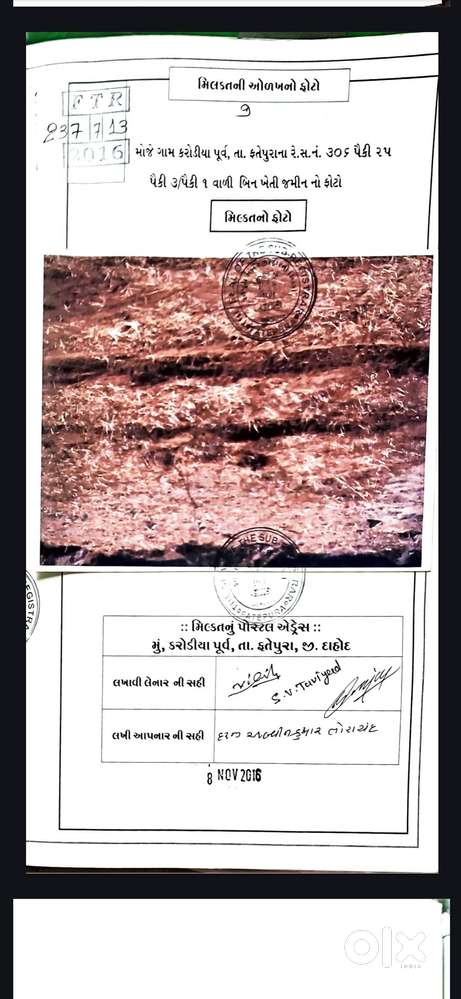 મિલકતની ઓળખનો ફોટો
૭
FTR
237 7 13
2016
મોજે ગામ કરોડીયા પૂર્વ, તા. ફતેપુરાના રે.સ.નં. ૩૦૬ પૈકી ૨૫
પૈકી ૩/પૈકી ૧ વાળી બિન ખેતી જમીન નો ફોટો
મિલ્કતનો ફોટો
THE SUB
:: મિલ્કતનું પોસ્ટલ એડ્રેસ ::
મું, કરોડીયા પૂર્વ, તા. ફતેપુરા, જી. દાહોદ
લખાવી લેનાર ની સહી
S.V. Taviyad
લખી આપનાર ની સહી
8 NOV 2016
olx
INDIA